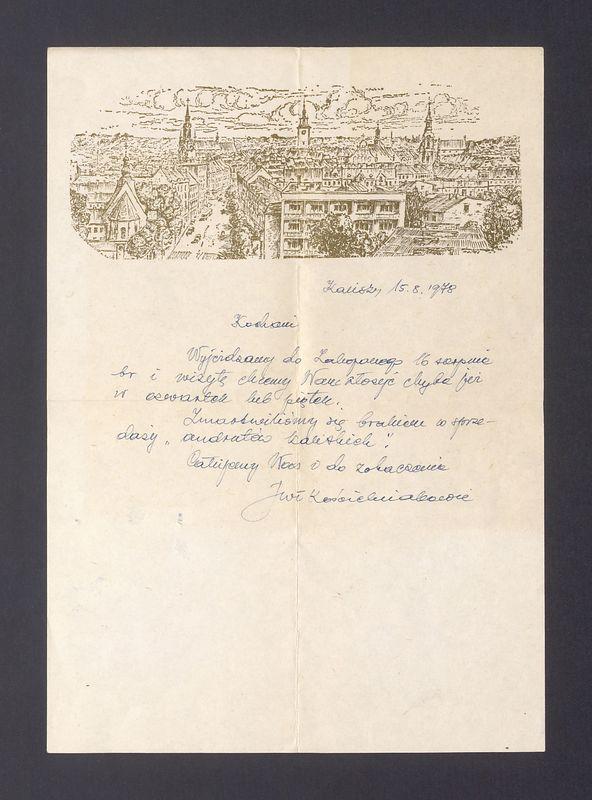 Kalisz, 15.8.1978
Kochani
Wyjeżdżamy do Zakopanego 16 sierpnia
br i wizytę chcemy Wam złożyć chyba już
w czwartek lub piątek.
Zmartwiliśmy się brakiem w sprze-
daży „andrutów kaliskich".
Całujemy Was i do zobaczenia
Kościelniakowie